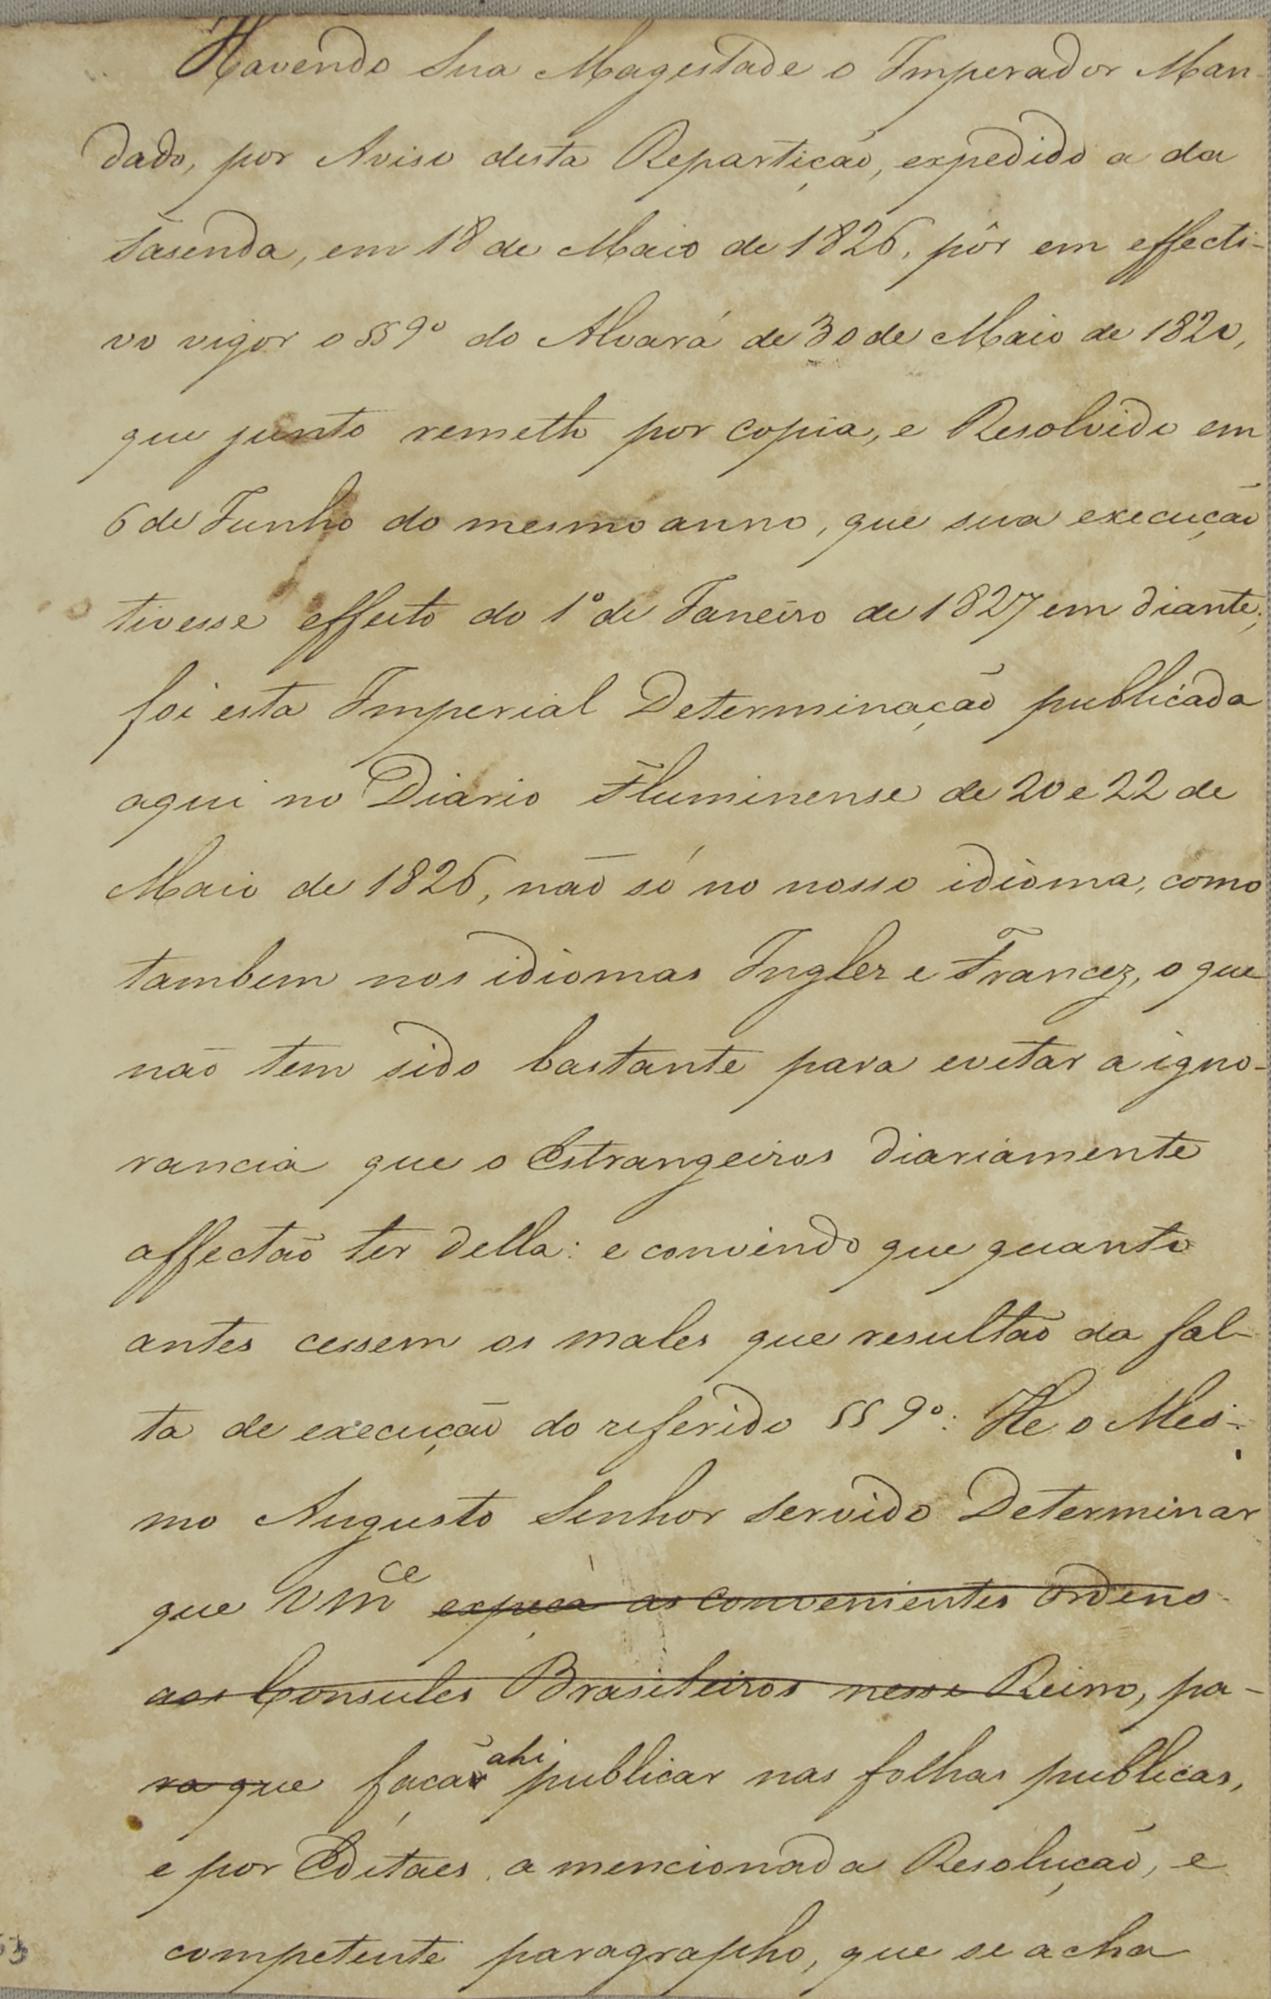 Havendo Sua Magestade o Imperador Man-
dado, por Aviso desta Repartição, expedido a da
Fasenda, em 18 de Maio de 1826, pôr em effecti-
vo vigor o §§ 9º do Alvará de 30 de Maio de 1820,
que junto remetto por copia, e Resolvido em
6 de Junho do mesmo anno, que sua execução
tivesse effeito do 1º de Janeiro de 1827 em diante;
foi esta Imperial Determinação publicada
aqui no Diario Fluminense de 20 e 22 de
Maio de 1826, não só no nosso idioma, como
tambem nos idiomas Inglez e Francez, o que
não tem sido bastante para evitar a igno-
rancia que o Estrangeiros diariamente
affectão ter della: e convindo que quanto
antes cessem os males que resultão da fal-
ta de execução do referido §§ 9º: He o Mes-
mo Augusto Senhor servido Determinar
que Vmce expeça as convenientes ordens
aos Consules Brasileiros nesse Reino, pa-
ra que faça ahi publicar nas folhas publicas,
e por Editaes, a mencionada Resolução, e
competente paragrapho, que se acha